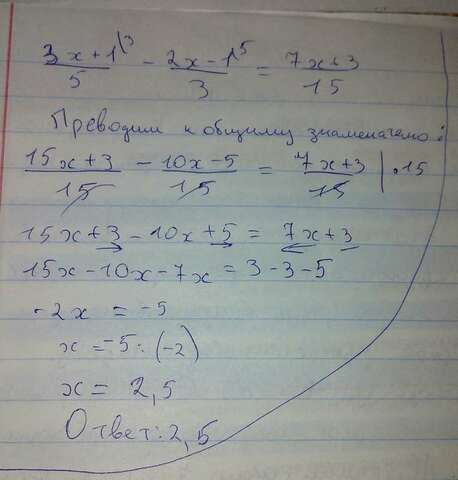 3x+1\3/5 - 2x-1\5/3 = 7x+3/15
Преводим к общиму знаменателю:
15x+3/15 - 10x-5/15 = 7x+3/15 | ·15
15x+3 - 10x+5 = 7x+3
15x-10x-7x = 3-3-5
-2x = -5
x = -5 : (-2)
x = 2,5
Ответ: 2,5